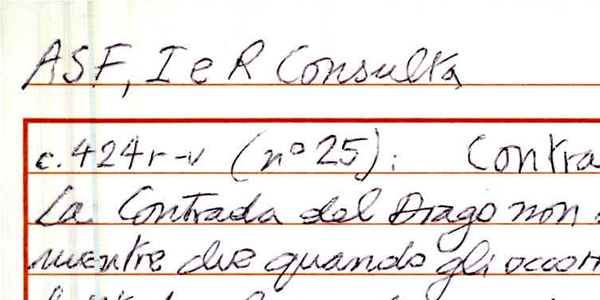 ASF, I e R Consulta
c. 424r-v (n° 25): Contra
La Contrada del Drago non
mentre che quando gli occorr